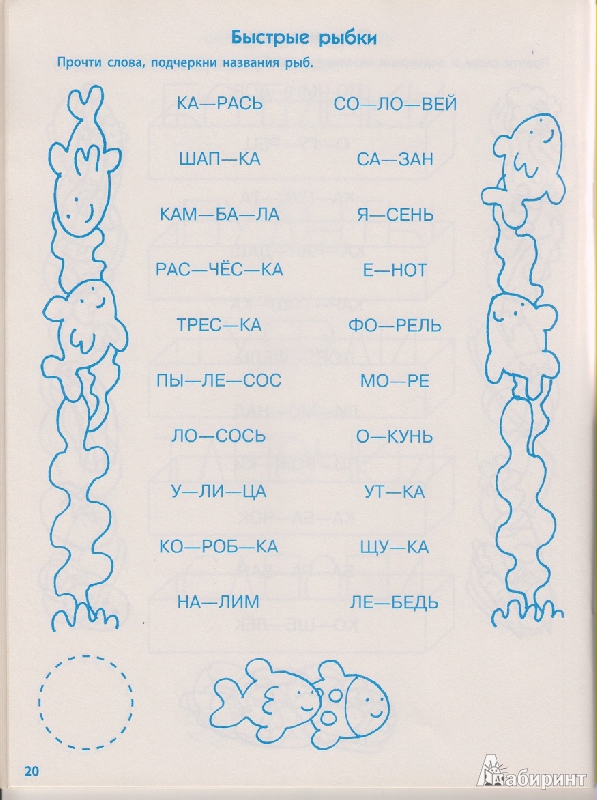 Быстрые рыбки
Прочти слова, подчеркни названия рыб.
КА—РАСЬ СО—ЛО—ВЕЙ
ШАП—КА СА—ЗАН
КАМ—БА—ЛА Я—СЕНЬ
РАС—ЧЁС—КА Е—НОТ
ТРЕС—КА ФО—РЕЛЬ
ПЫ—ЛЕ—СОС МО—РЕ
ЛО—СОСЬ О—КУНЬ
У—ЛИ—ЦА УТ—КА
КО—РОБ—КА ЩУ—КА
НА—ЛИМ ЛЕ—БЕДЬ
20
Лабиринт